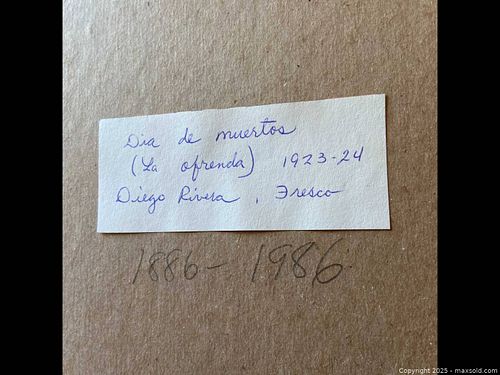 Dia de muertos
(La ofrenda) 1923-24
Diego Rivera, Fresco
1886- 1986
Copyright 2025 - maxsold.com